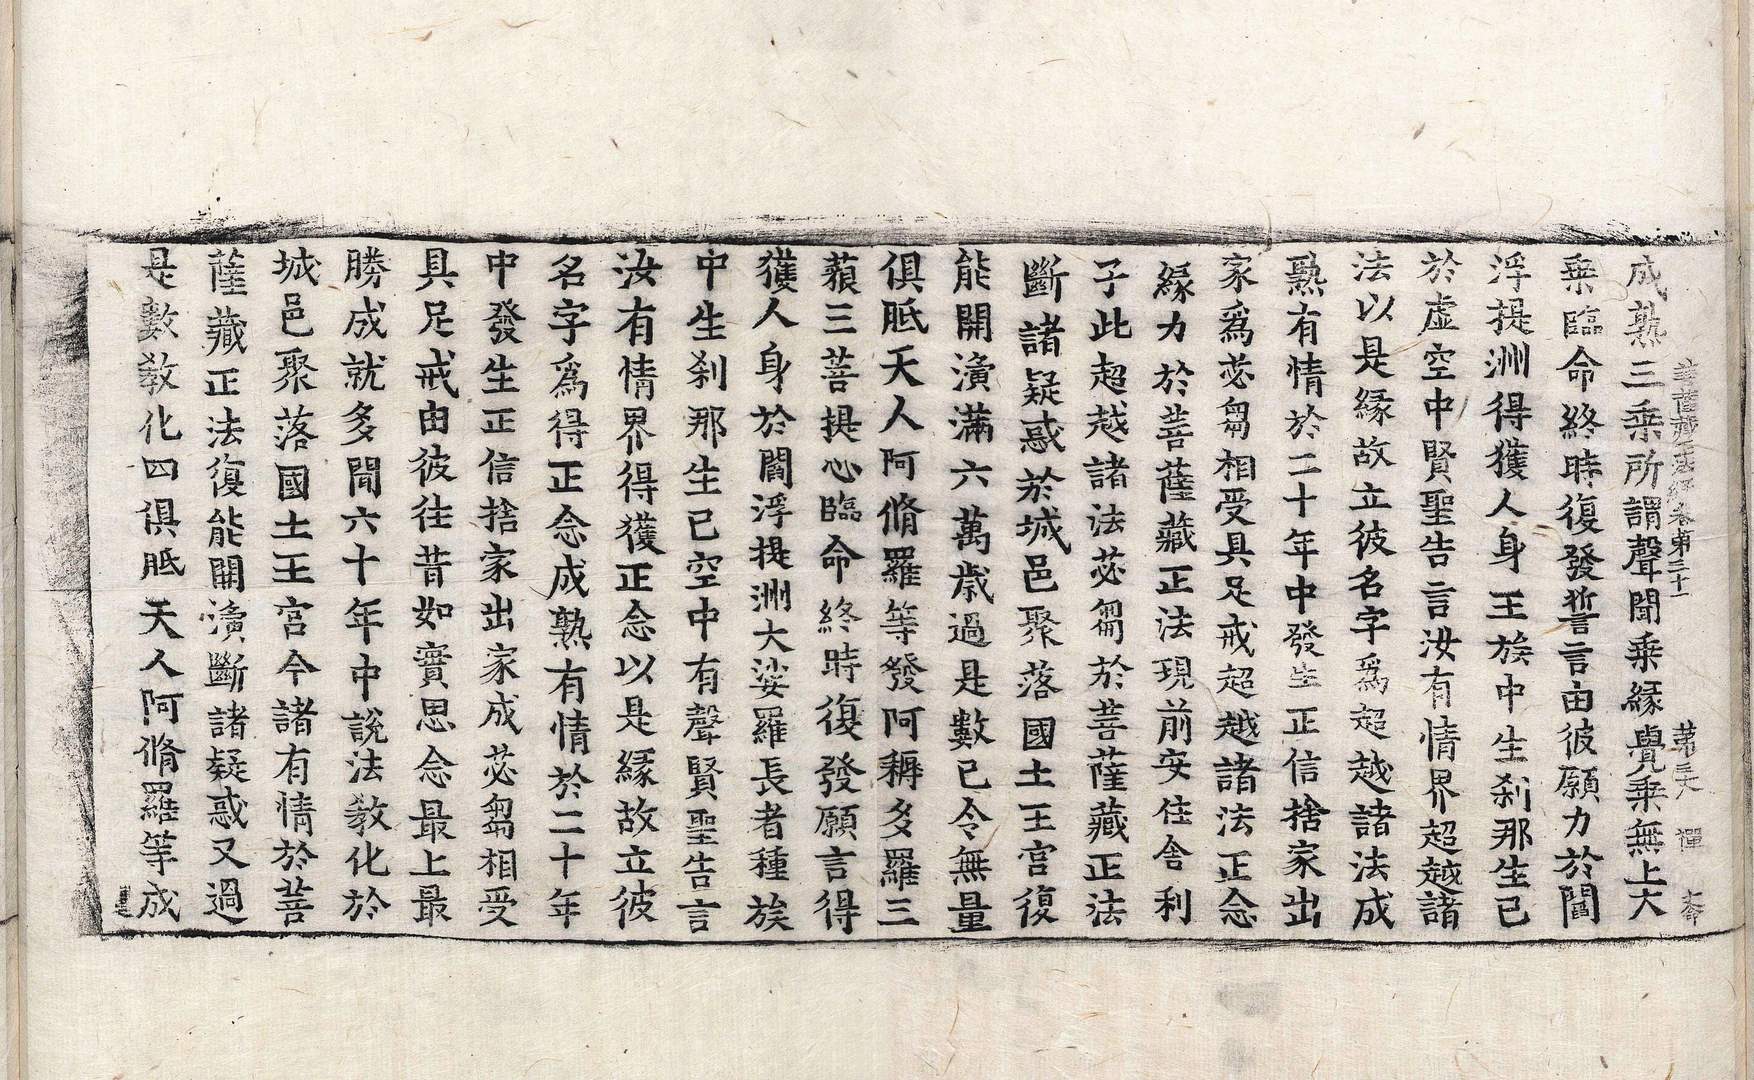 菩薩藏正法經卷第三十一 第三六 禪
成熟三乘所謂聲聞乘緣覺乘無上大
乘臨命終時復發誓言由彼願力於閻
浮提洲得獲人身王族中生刹那生已
於虛空中賢聖告言汝有情界超越諸
法以是緣故立彼名字爲超越諸法成
熟有情於二十年中發生正信捨家出
家爲苾芻相受具足戒超越諸法正念
緣力於菩薩藏正法現前安住舍利
子此超越諸法苾芻於菩薩藏正法
斷諸疑惑於城邑聚落國土王宮復
能開演滿六萬歲過是數已令無量
俱胝天人阿脩羅等發阿耨多羅三
藐三菩提心臨命終時復發願言得
獲人身於閻浮提洲大娑羅長者種族
中生刹那生已空中有聲賢聖告言
汝有情界得獲正念以是緣故立彼
名字爲得正念成熟有情於二十年
中發生正信捨家出家成苾芻相受
具足戒由彼往昔如實思念最上最
勝成就多聞六十年中說法教化於
城邑聚落國土王宮令諸有情於菩
薩藏正法復能開演斷諸疑惑又過
是數教化四俱胝天人阿脩羅等成